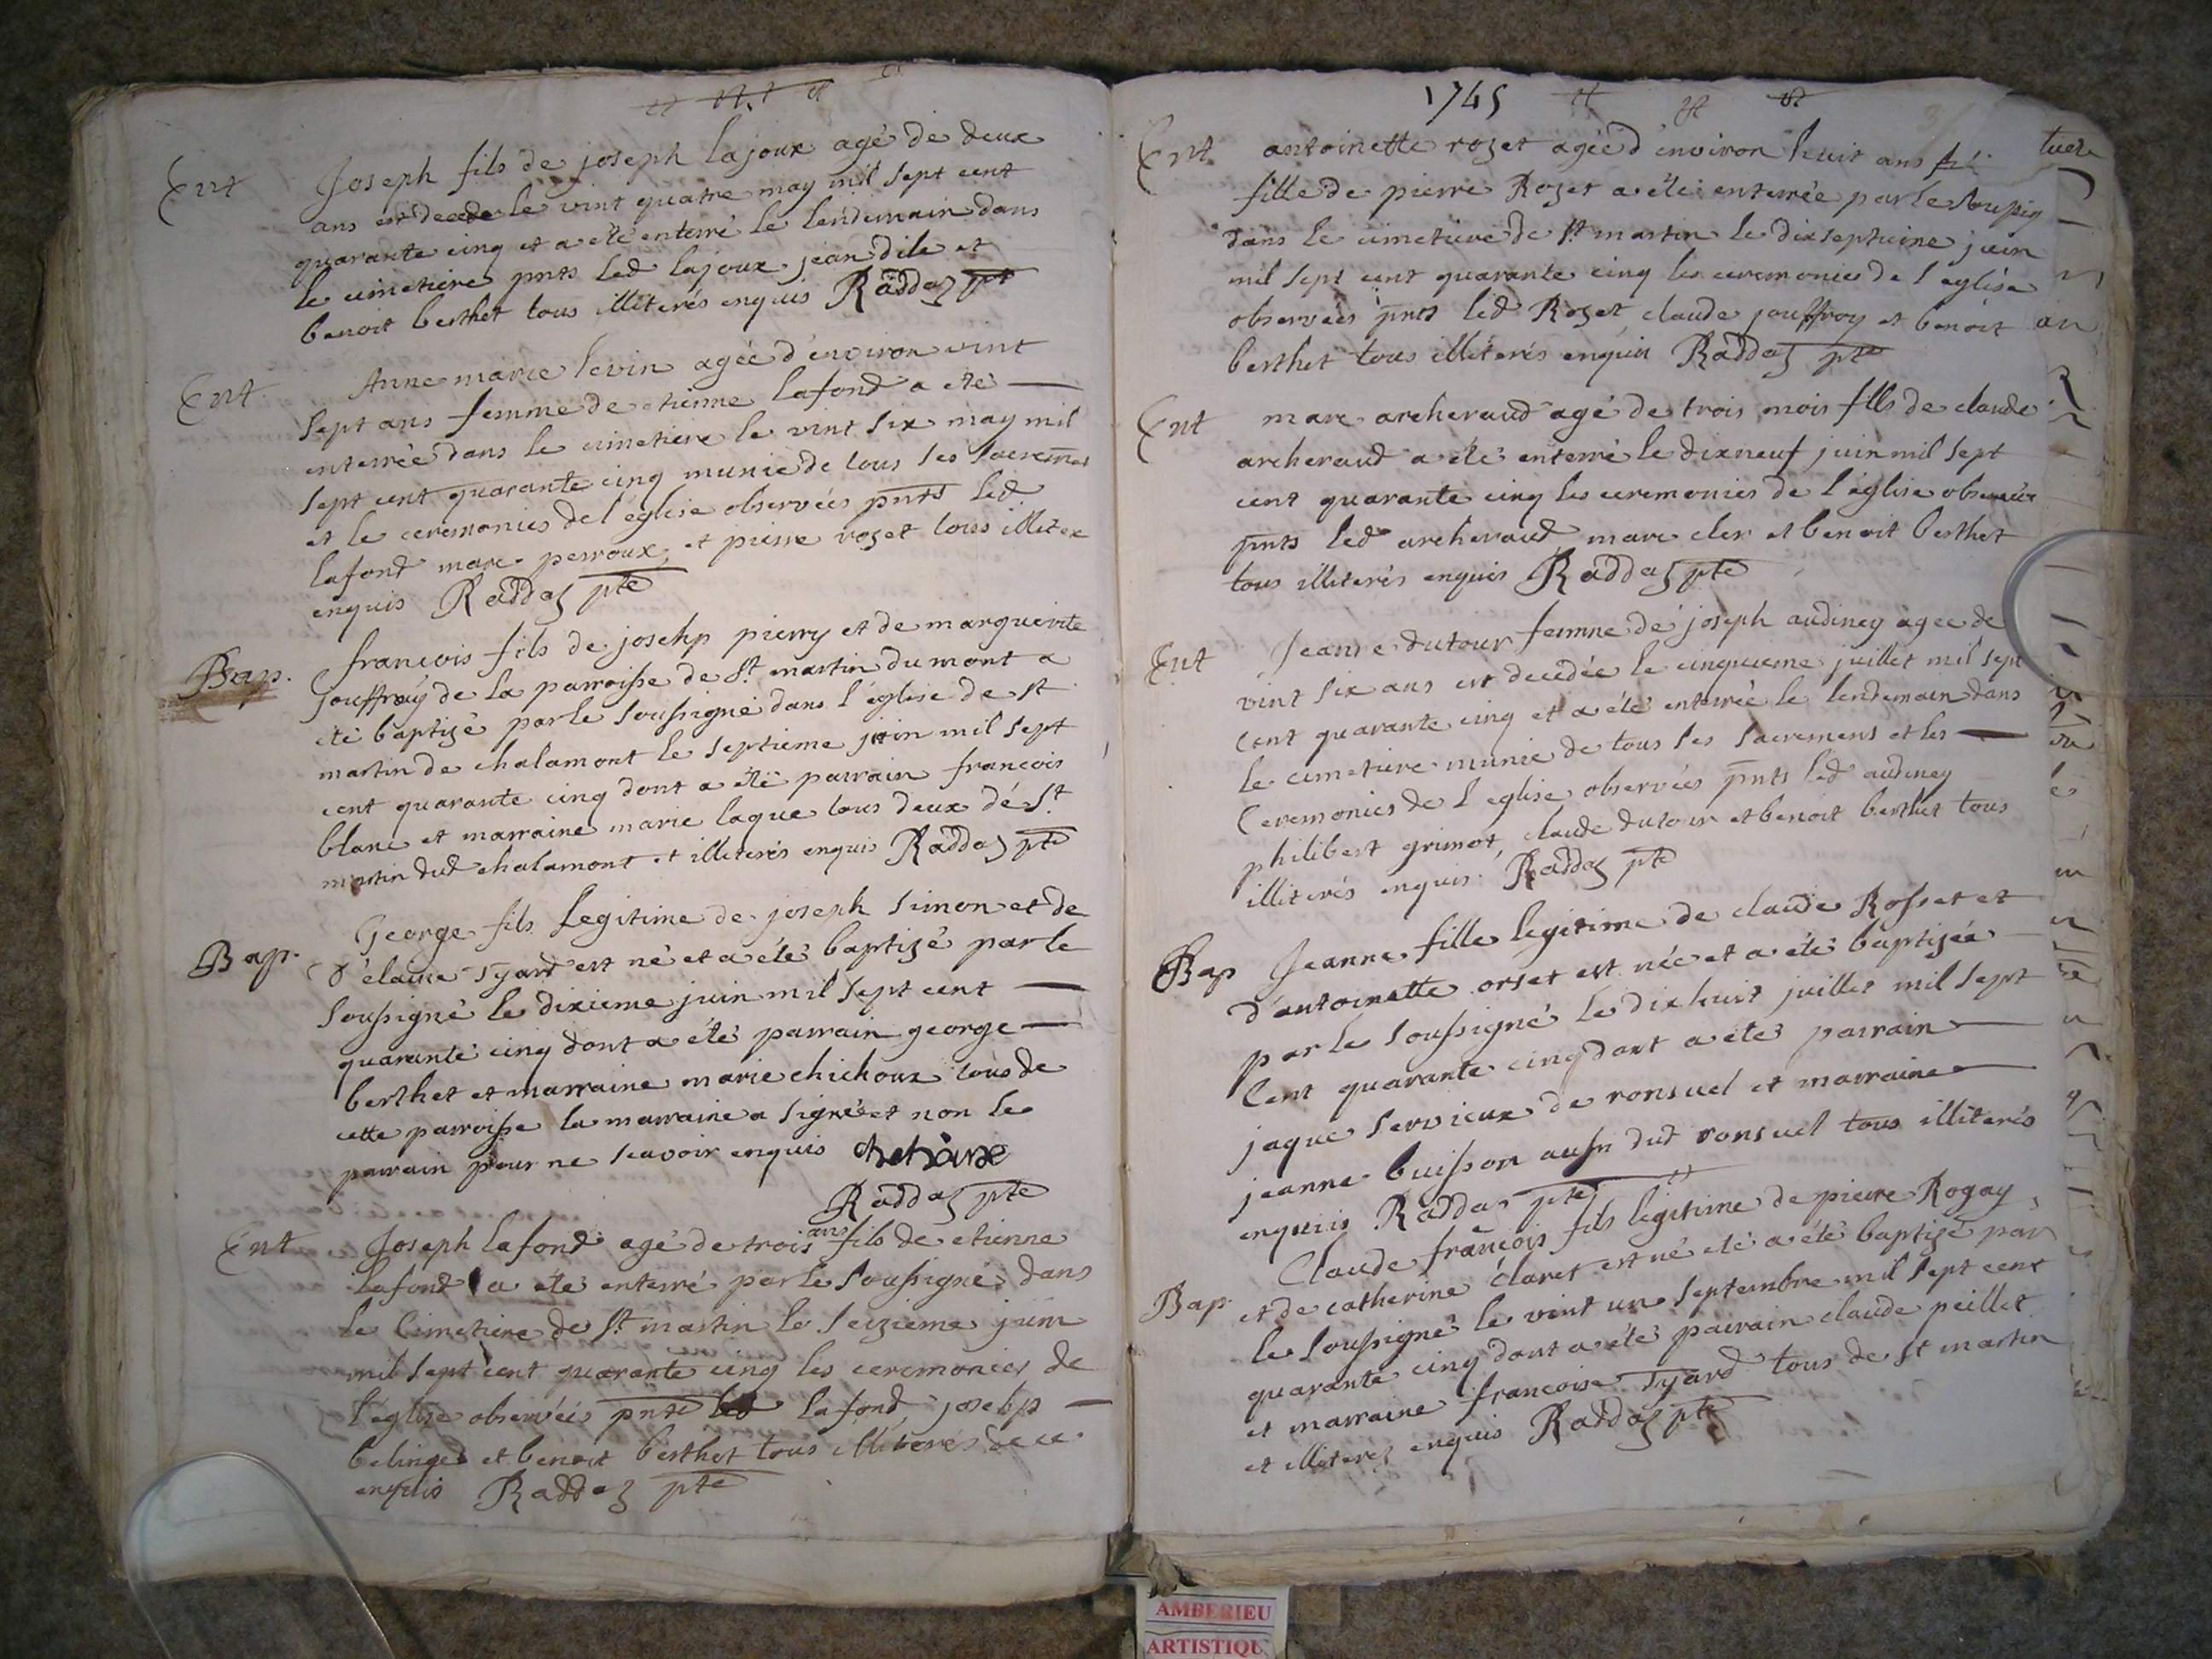 Ent
Joseph fils de joseph lajoux agé de deux
ans est decede le vint quatre may mil sept cent
quarante cinq et a été enterré le lendemain dans
le cimetiere pnts led lajoux jean dile et
benoit berthet tous illiterés enquis Raddaz ptr
Ent
Anne marie levin agée d'environ vint
sept ans femme de etienne lafond a eté
enterrée dans le cimetiere le vint six may mil
sept cent quarante cinq munie de tous ses sacremens
et le ceremonies de l'église observées pnts led
lafond marc perroux et pierre rozet tous illiter
enquis Raddaz ptr
Bap.
françois fils de josehp pierry et de marguerite
jouffray de la parroisse de St martin du mont a
eté baptizé par le soussigné dans l'église de st
martin de chalamont le septieme juin mil sept
cent quarante cinq dont a été parrain francois
blanc et marraine marie laque tous deux dé St
martin dud chalamont et illiterés enquis Raddaz ptr
Bap.
George fils legitime de joseph simon et de
d'élaine Tyard est né et a été baptizé par le
soussigné le dixieme juin mil sept cent
quarante cinq dont a été parrain george
berthet et marraine marie chichoux tous de
cette parroisse la marraine a signée et non le
parrain pour ne scavoir enquis
Raddaz ptr
Ent
Joseph lafond agé de trois ans fils de etienne
lafond a été enterré par le soussigné dans
le Cimetiere de St martin le seizieme juin
mil sept cent quarante cinq les ceremonies de
l'église observées pnts led lafond josehp
belinged et benoit berthet tous illiterés de ce
enquis Raddaz ptr
1745
Ent.
antoinette rozet agée d'environ huit ans
fille de pierre Rozet a été enterrée par le soussig
dans le cimetiere de St martin le dix septieme juin
mil sept cent quarante cinq les ceremonies de l'eglise
observées pnts led Rozet claude jouffroy et benoit
berthet tous illiterés enquis Raddaz ptr
Ent
marc archeraud agé de trois mois fills de claude
archeraud a été enterré le dix neuf juin mil sept
cent quarante cinq les ceremonies de l'église observées
pnts led archeraud marc cler et benoit berthet
tous illiterés enquis Raddaz ptr
Ent
Jeanne dutour femme dé joseph audiney agee de
vint six ans est decedée le cinquieme juillet mil sept
cent quarante cinq et a été enterrée le lendemain dans
le cimetiere munie de tous ses sacremens et les
Ceremonies de l'eglise observées pnts led audiney
philibert grimot, claude dutour et benoit berthet tous
illiterés enquis Raddaz ptr
Bap
Jeanne fille legitime de claude Rosset et
d'antoinette orset est née et a été baptizée
par le soussigné le dix huit juillet mil sept
Cent quarante cinq dont a été parrain
jaque servieux de ronsuel et marraine
jeanne buisson aussi dud ronsuel tous illiterés
enquis Raddaz ptr
Bap
Claude françois fils legitime de pierre Rogay
et de catherine claret est né été a été baptizé par
le soussigné le vint un septembre mil sept cent
quarante cinq dont a été parrain claude peillet
et marraine francoise Tyard tous de st martin
et illiterez enquis Raddaz ptr
AMBERIEU
ARTISTIQU